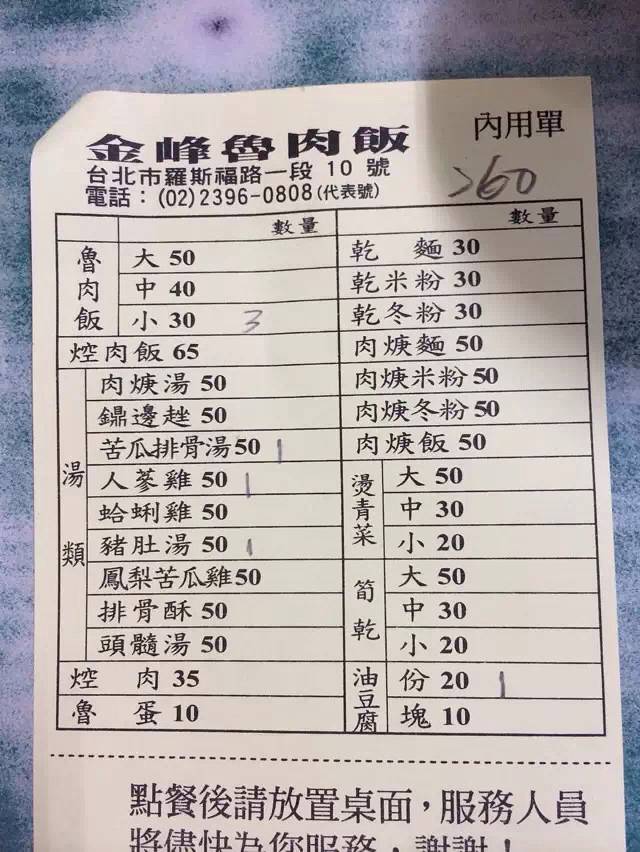 金峰魯肉飯
內用單
台北市羅斯福路一段 10 號
電話：(02)2396-0808(代表號)
260
數量
魯肉飯
大 50
中 40
小 30 3
焢肉飯 65
湯類
肉焿湯 50
鼎邊趖 50
苦瓜排骨湯50 1
人蔘雞 50 1
蛤蜊雞 50
豬肚湯 50 1
鳳梨苦瓜雞50
排骨酥 50
頭髓湯 50
焢肉 35
魯蛋 10
數量
乾麵 30
乾米粉 30
乾冬粉 30
肉焿麵 50
肉焿米粉50
肉焿冬粉50
肉焿飯 50
燙青菜
大 50
中 30
小 20
筍乾
大 50
中 30
小 20
油豆腐
份 20 1
塊 10
點餐後請放置桌面，服務人員
將儘快為您服務，謝謝！